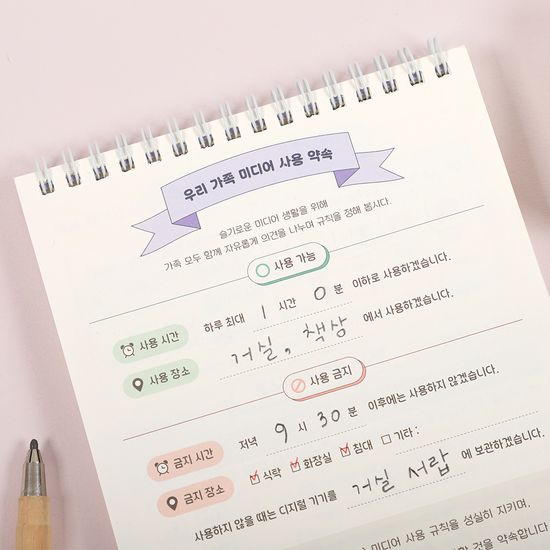 우리 가족 미디어 사용 약속
슬기로운 미디어 생활을 위해
가족 모두 함께 자유롭게 의견을 나누며 규칙을 정해 봅시다.
사용 가능
사용 시간 하루 최대 1 시간 0 분 이하로 사용하겠습니다.
사용 장소 거실, 책상 에서 사용하겠습니다.
사용 금지
금지 시간 저녁 9 시 30 분 이후에는 사용하지 않겠습니다.
금지 장소 식탁 화장실 침대 기타 :
사용하지 않을 때는 디지털 기기를 거실 서랍 에 보관하겠습니다.
미디어 사용 규칙을 성실히 지키며,
할 것을 약속합니다